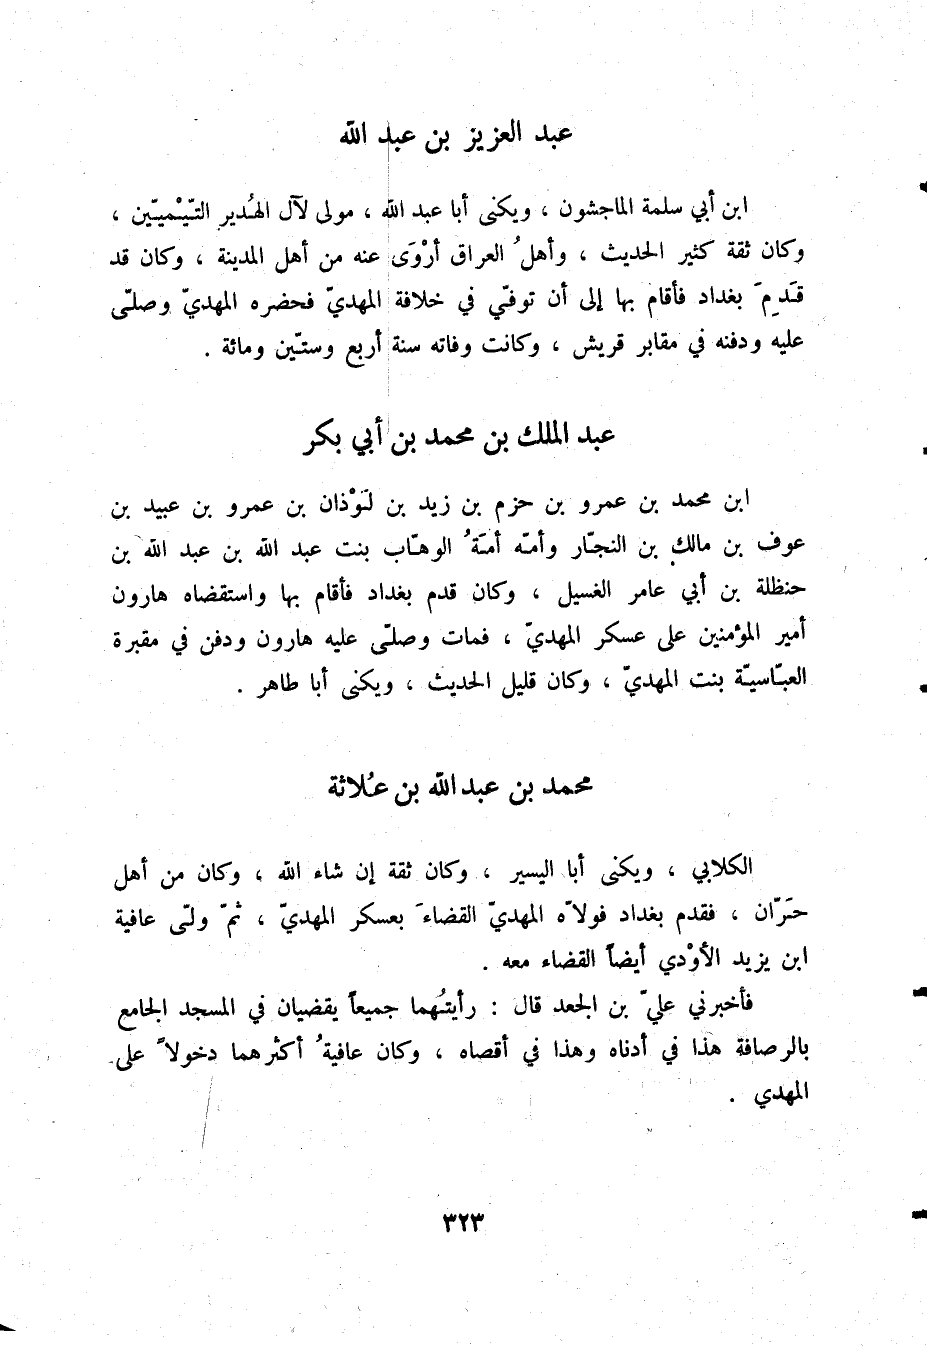 عبد العزيز بن عبد الله
ابن أبي سلمة الماجشون ، ويكنى أبا عبد الله ، مولى لآل الهُدير التّيْميّين ،
وكان ثقة كثير الحديث ، وأهلُ العراق أرْوَى عنه من أهل المدينة ، وكان قد
قَدِمَ بغداد فأقام بها إلى أن توفّي في خلافة المهديّ فحضره المهديّ وصلّى
عليه ودفنه في مقابر قريش ، وكانت وفاته سنة أربع وستّين ومائة .
عبد الملك بن محمد بن أبي بكر
ابن محمد بن عمرو بن حزم بن زيد بن لَوْذان بن عمرو بن عبيد بن
عوف بن مالك بن النجّار وأمّه أمَةُ الوهّاب بنت عبد الله بن عبد الله بن
حنظلة بن أبي عامر الغسيل ، وكان قدم بغداد فأقام بها واستقضاه هارون
أمير المؤمنين على عسكر المهديّ ، فمات وصلّى عليه هارون ودفن في مقبرة
العبّاسيّة بنت المهديّ ، وكان قليل الحديث ، ويكنى أبا طاهر .
محمد بن عبد الله بن عُلاثة
الكلابي ، ويكنى أبا اليسير ، وكان ثقة إن شاء الله ، وكان من أهل
حَرّان ، فقدم بغداد فولاّه المهديّ القضاءَ بعسكر المهديّ ، ثمّ ولّى عافية
ابن يزيد الأوْدي أيضاً القضاء معه .
فأخبرني عليّ بن الجعد قال : رأيتُهما جميعاً يقضيان في المسجد الجامع
بالرصافة هذا في أدناه وهذا في أقصاه ، وكان عافيةُ أكثرهما دخولاً على
المهدي .
٣٢٣